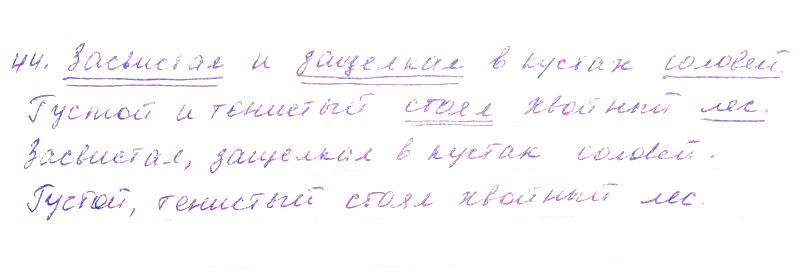 44. Засвистал и защелкал в кустах соловей.
Густой и тенистый стоял хвойный лес.
Засвистал, защелкал в кустах соловей.
Густой, тенистый стоял хвойный лес.